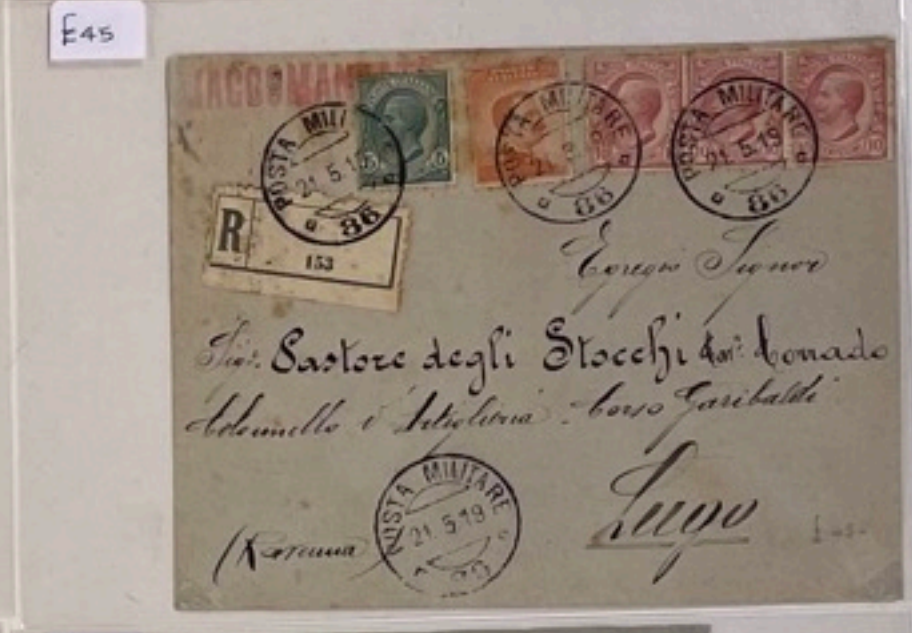 E45
RACCOMANDATA
POSTA MILITARE
21.5.19
86
POSTA MILITARE
86
POSTA MILITARE
21.5.19
86
R
153
Egregio Signor
Sigr. Pastore degli Stocchi Cav. Corrado
Colonnello d'Artiglieria Corso Garibaldi
Lugo
(Ravenna)
POSTA MILITARE
21.5.19